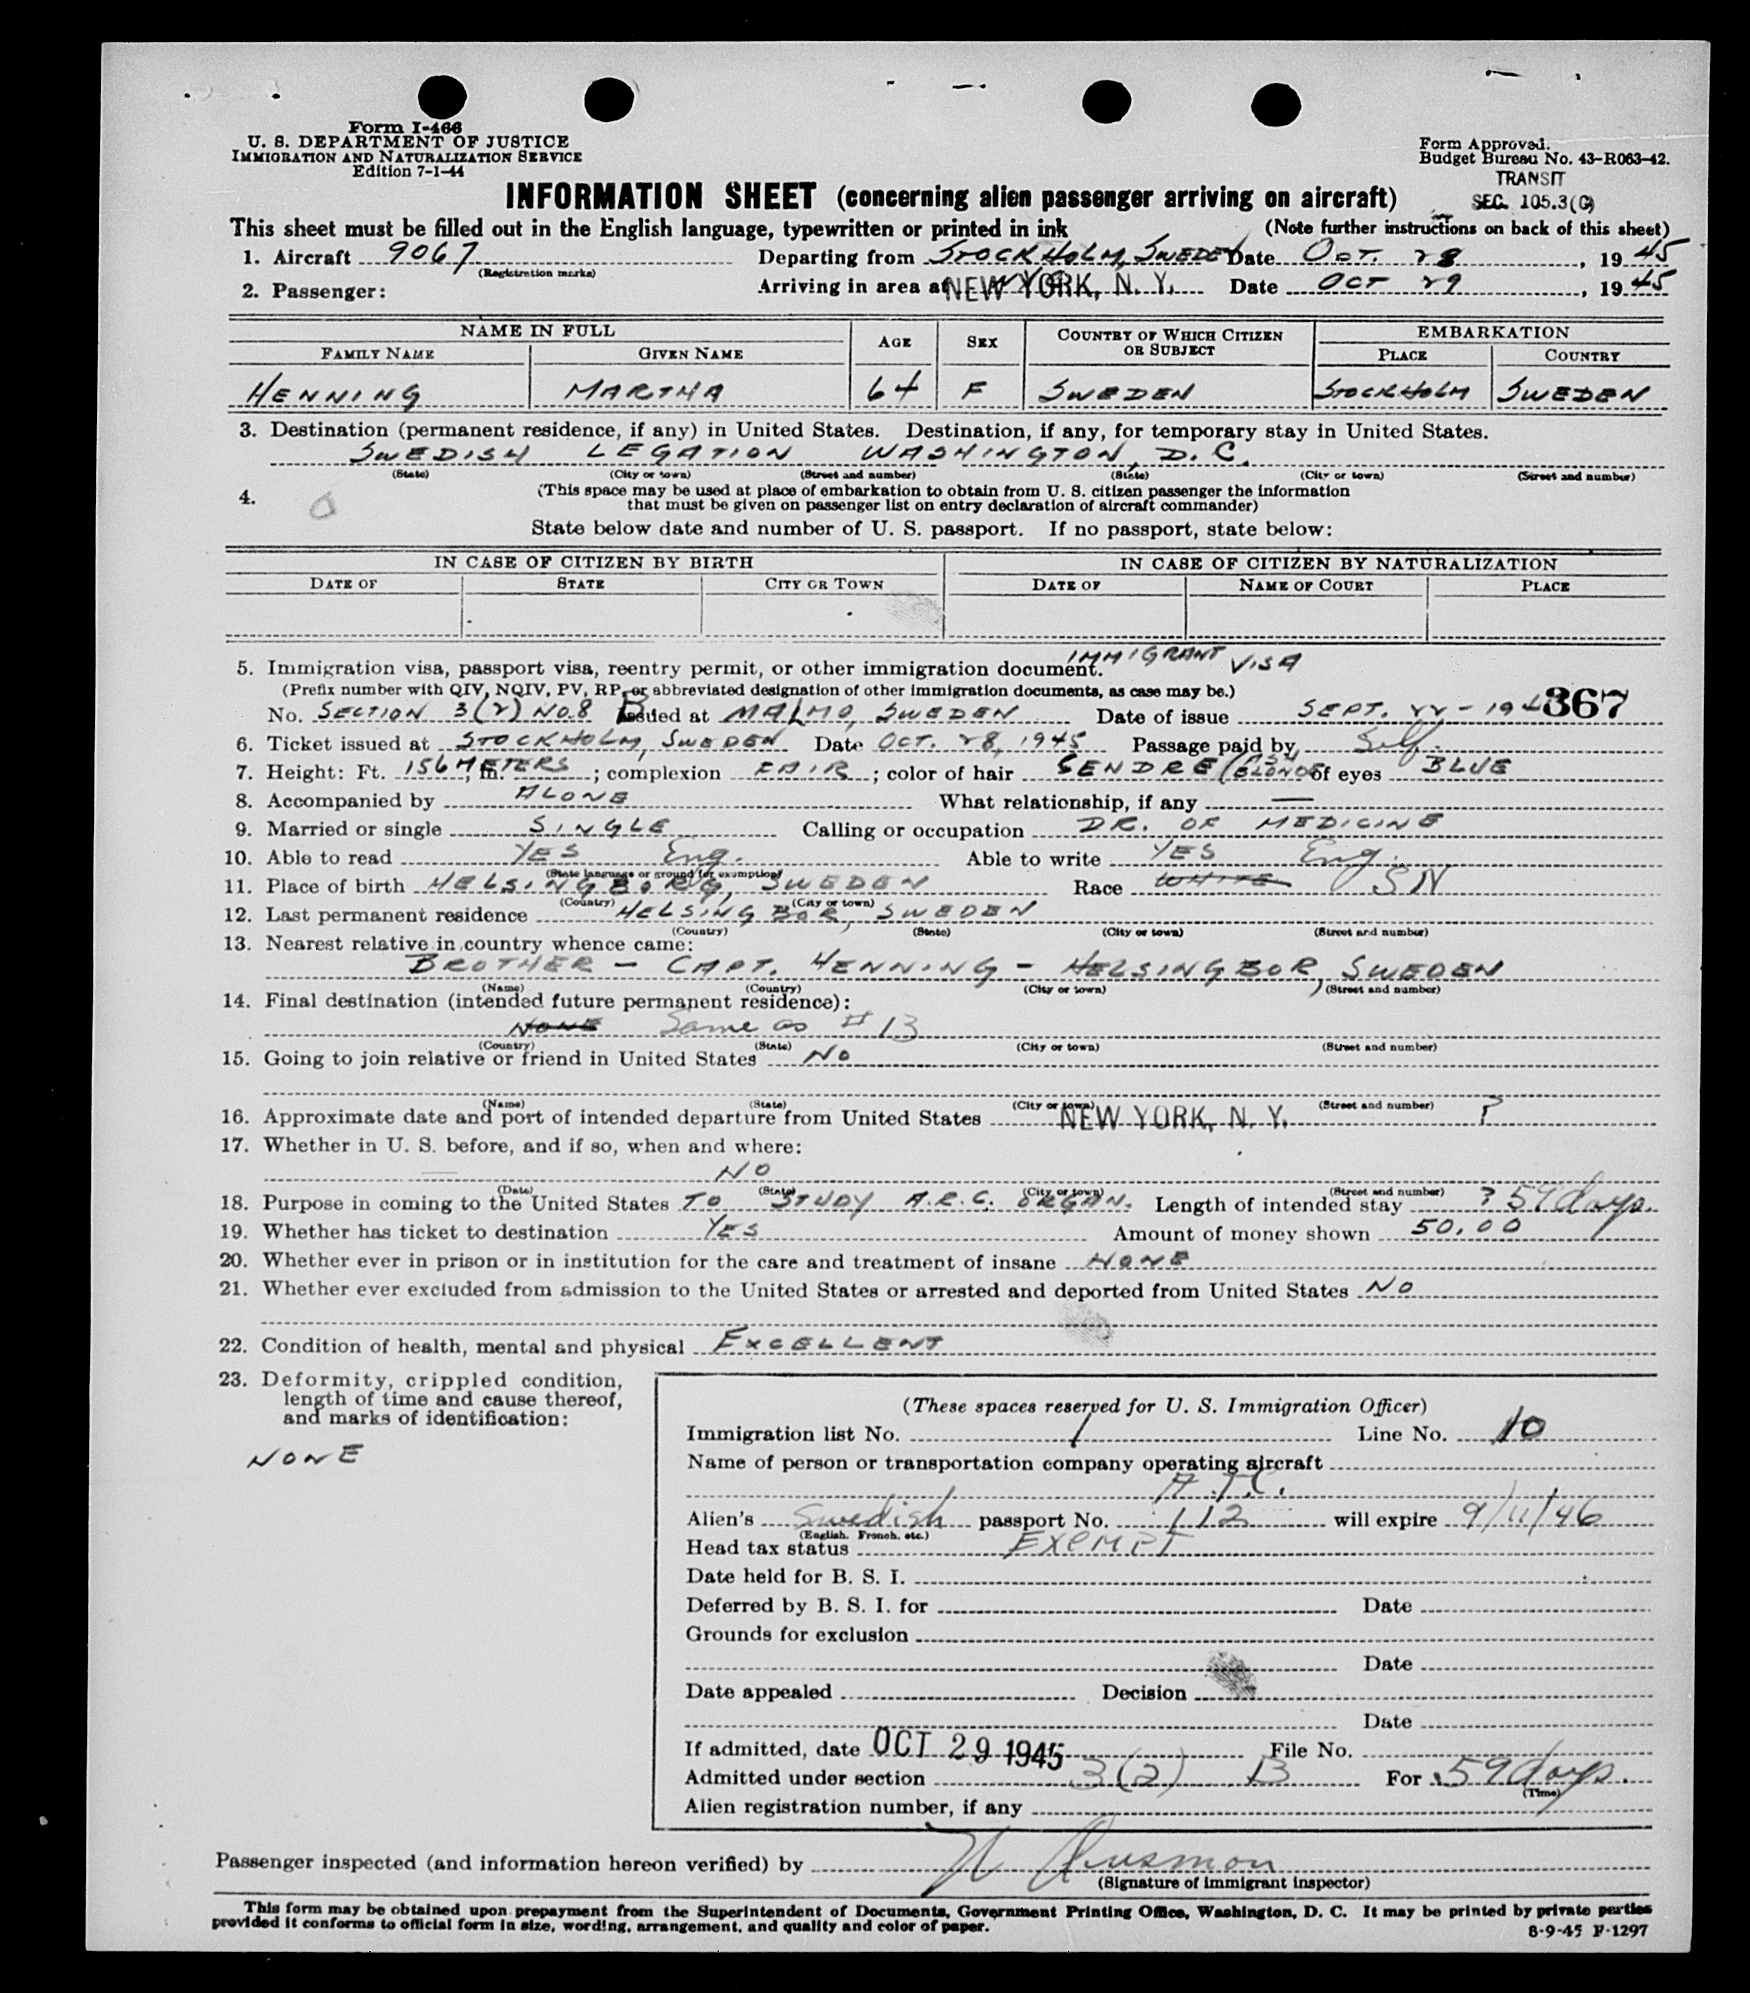 Form I-466
U. S. DEPARTMENT OF JUSTICE
IMMIGRATION AND NATURALIZATION SERVICE
Edition 7-1-44
Form Approved.
Budget Bureau No. 43-R063-42.
TRANSIT
SEC. 105.3(C)
INFORMATION SHEET (concerning alien passenger arriving on aircraft)
This sheet must be filled out in the English language, typewritten or printed in ink (Note further instructions on back of this sheet)
1. Aircraft 9067 Departing from STOCKHOLM, SWEDEN Date OCT. 28, 1945
(Registration marks)
2. Passenger: Arriving in area at NEW YORK, N. Y. Date OCT 29, 1945
NAME IN FULL AGE SEX COUNTRY OF WHICH CITIZEN OR SUBJECT EMBARKATION
FAMILY NAME GIVEN NAME PLACE COUNTRY
HENNING MARTHA 64 F SWEDEN STOCKHOLM SWEDEN
3. Destination (permanent residence, if any) in United States. Destination, if any, for temporary stay in United States.
SWEDISH LEGATION WASHINGTON, D.C.
(State) (City or town) (Street and number) (State) (City or town) (Street and number)
4. (This space may be used at place of embarkation to obtain from U. S. citizen passenger the information
that must be given on passenger list on entry declaration of aircraft commander)
State below date and number of U. S. passport. If no passport, state below:
IN CASE OF CITIZEN BY BIRTH IN CASE OF CITIZEN BY NATURALIZATION
DATE OF STATE CITY OR TOWN DATE OF NAME OF COURT PLACE
5. Immigration visa, passport visa, reentry permit, or other immigration document. IMMIGRANT VISA
(Prefix number with QIV, NQIV, PV, RP, or abbreviated designation of other immigration documents, as case may be.)
No. SECTION 3(2) NO.8 B Issued at MALMO, SWEDEN Date of issue SEPT. 22-194 367
6. Ticket issued at STOCKHOLM, SWEDEN Date OCT. 28, 1945 Passage paid by Self.
7. Height: Ft. 156 METERS, in. ; complexion FAIR; color of hair CENDRE (BLONDE of eyes BLUE
8. Accompanied by ALONE What relationship, if any —
9. Married or single SINGLE Calling or occupation DR. OF MEDICINE
10. Able to read YES Eng. Able to write YES Eng.
(State language or ground for exemption)
11. Place of birth HELSINGBORG, SWEDEN Race WHITE SN
(Country) (City or town)
12. Last permanent residence HELSINGBOR, SWEDEN
(Country) (State) (City or town) (Street and number)
13. Nearest relative in country whence came:
BROTHER - CAPT. HENNING - HELSINGBOR, SWEDEN
(Name) (Country) (City or town) (Street and number)
14. Final destination (intended future permanent residence):
NONE Same as #13
(Country) (State) (City or town) (Street and number)
15. Going to join relative or friend in United States NO
(Name) (State) (City or town) (Street and number)
16. Approximate date and port of intended departure from United States NEW YORK, N. Y. ?
17. Whether in U. S. before, and if so, when and where:
NO
(Date) (State) (City or town) (Street and number)
18. Purpose in coming to the United States TO STUDY A.R.C. ORGAN. Length of intended stay ? 59 days.
19. Whether has ticket to destination YES Amount of money shown 50.00
20. Whether ever in prison or in institution for the care and treatment of insane NONE
21. Whether ever excluded from admission to the United States or arrested and deported from United States NO
22. Condition of health, mental and physical EXCELLENT
23. Deformity, crippled condition,
length of time and cause thereof,
and marks of identification:
NONE
(These spaces reserved for U. S. Immigration Officer)
Immigration list No. 1 Line No. 10
Name of person or transportation company operating aircraft
A.T.C.
Alien's Swedish passport No. 112 will expire 9/11/46
(English, French, etc.)
Head tax status EXEMPT
Date held for B. S. I.
Deferred by B. S. I. for Date
Grounds for exclusion
Date
Date appealed Decision
Date
If admitted, date OCT 29 1945 File No.
Admitted under section 3(2) B For 59 days.
(Time)
Alien registration number, if any
Passenger inspected (and information hereon verified) by
(Signature of immigrant inspector)
This form may be obtained upon prepayment from the Superintendent of Documents, Government Printing Office, Washington, D. C. It may be printed by private parties
provided it conforms to official form in size, wording, arrangement, and quality and color of paper.
8-9-45 F-1297